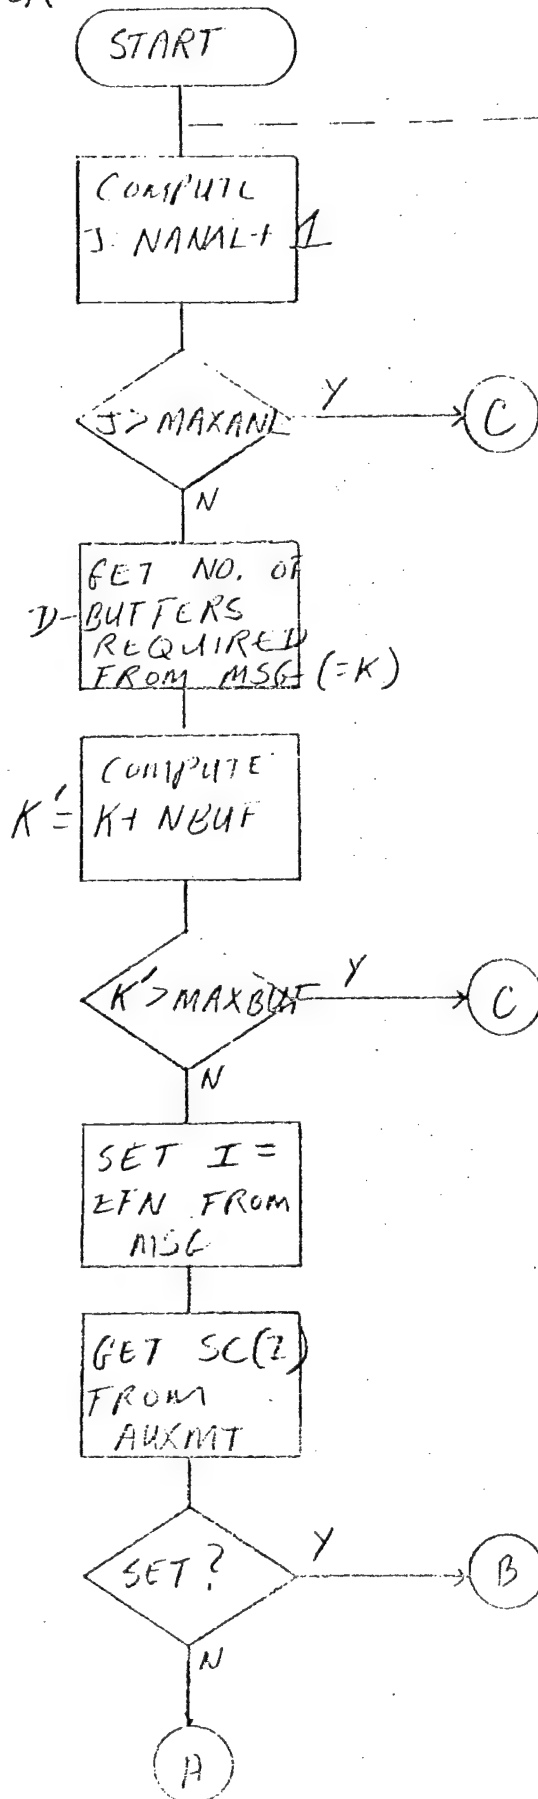 START
COMPUTE
J = NANAL + 1
J > MAXANL
Y
C
N
GET NO. OF
D-BUFFERS
REQUIRED
FROM MSG (=K)
COMPUTE
K' = K + NBUF
K' > MAXBUF
Y
C
N
SET I =
EFN FROM
MSG
GET SC(I)
FROM
AUXMT
SET?
Y
B
N
A